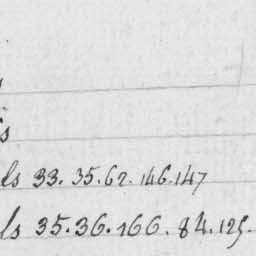 s
ls 33. 35. 62. 146. 147
ls 35. 36. 166. 84. 125.